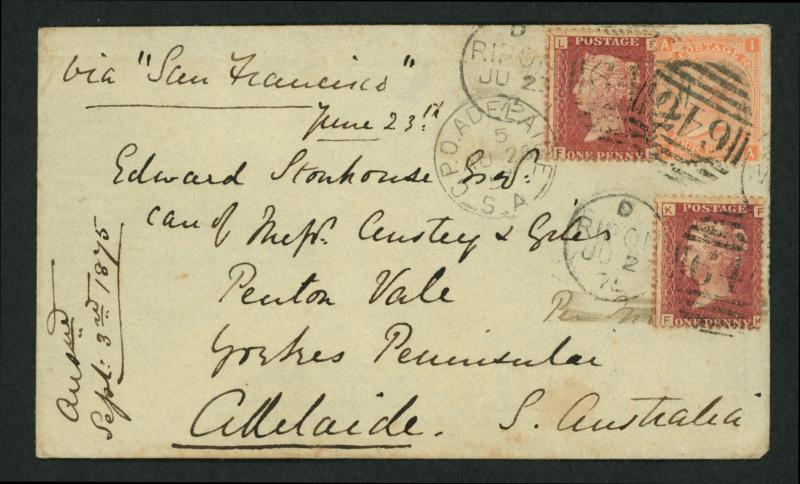 via "San Francisco"
June 23rd
Edward Stonhouse Esq.
care of Messrs. Anstey & Giles
Penton Vale
Yorkes Peninsular
Adelaide. S. Australia
Answd
Sept: 3rd 1875
D
RIPON
JU 2
G.P.O. ADELAIDE
5
S.A
D
RIPON
JU 2
75
L F
POSTAGE
F ONE PENNY L
A I
POSTAGE
I A
K F
POSTAGE
F ONE PENNY K